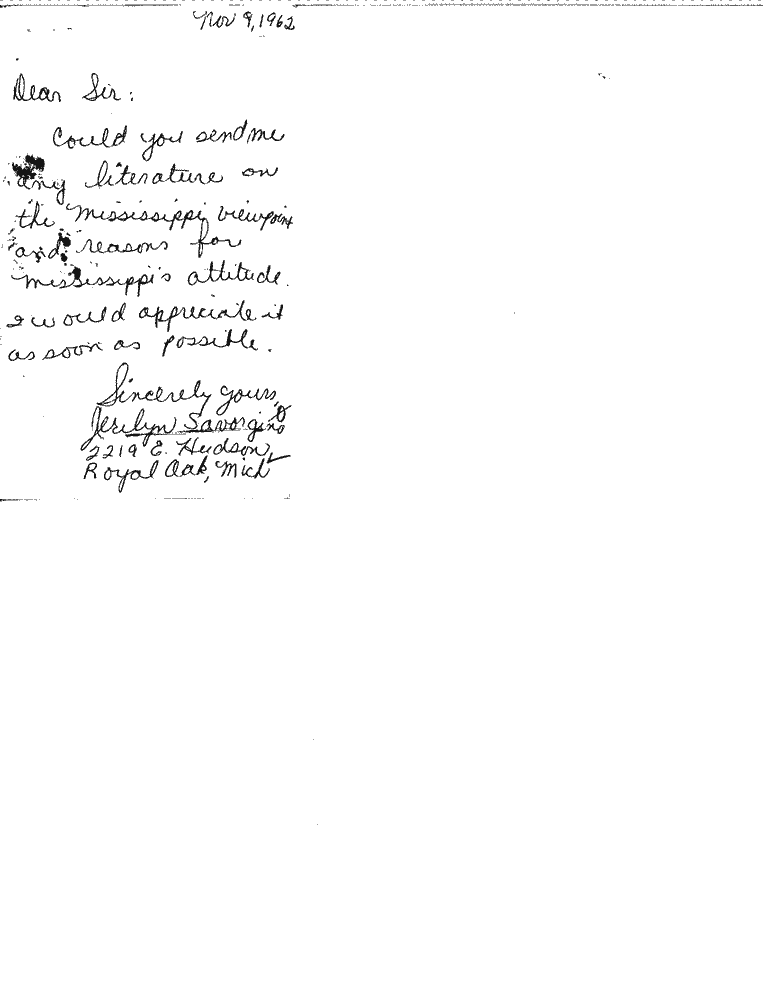 Nov 9, 1962
Dear Sir:
Could you send me
any literature on
the Mississippi viewpoint
and reasons for
Mississippi's attitude.
I would appreciate it
as soon as possible.
Sincerely yours,
Jerilyn Savorgino
2219 E. Hudson
Royal Oak, Mich